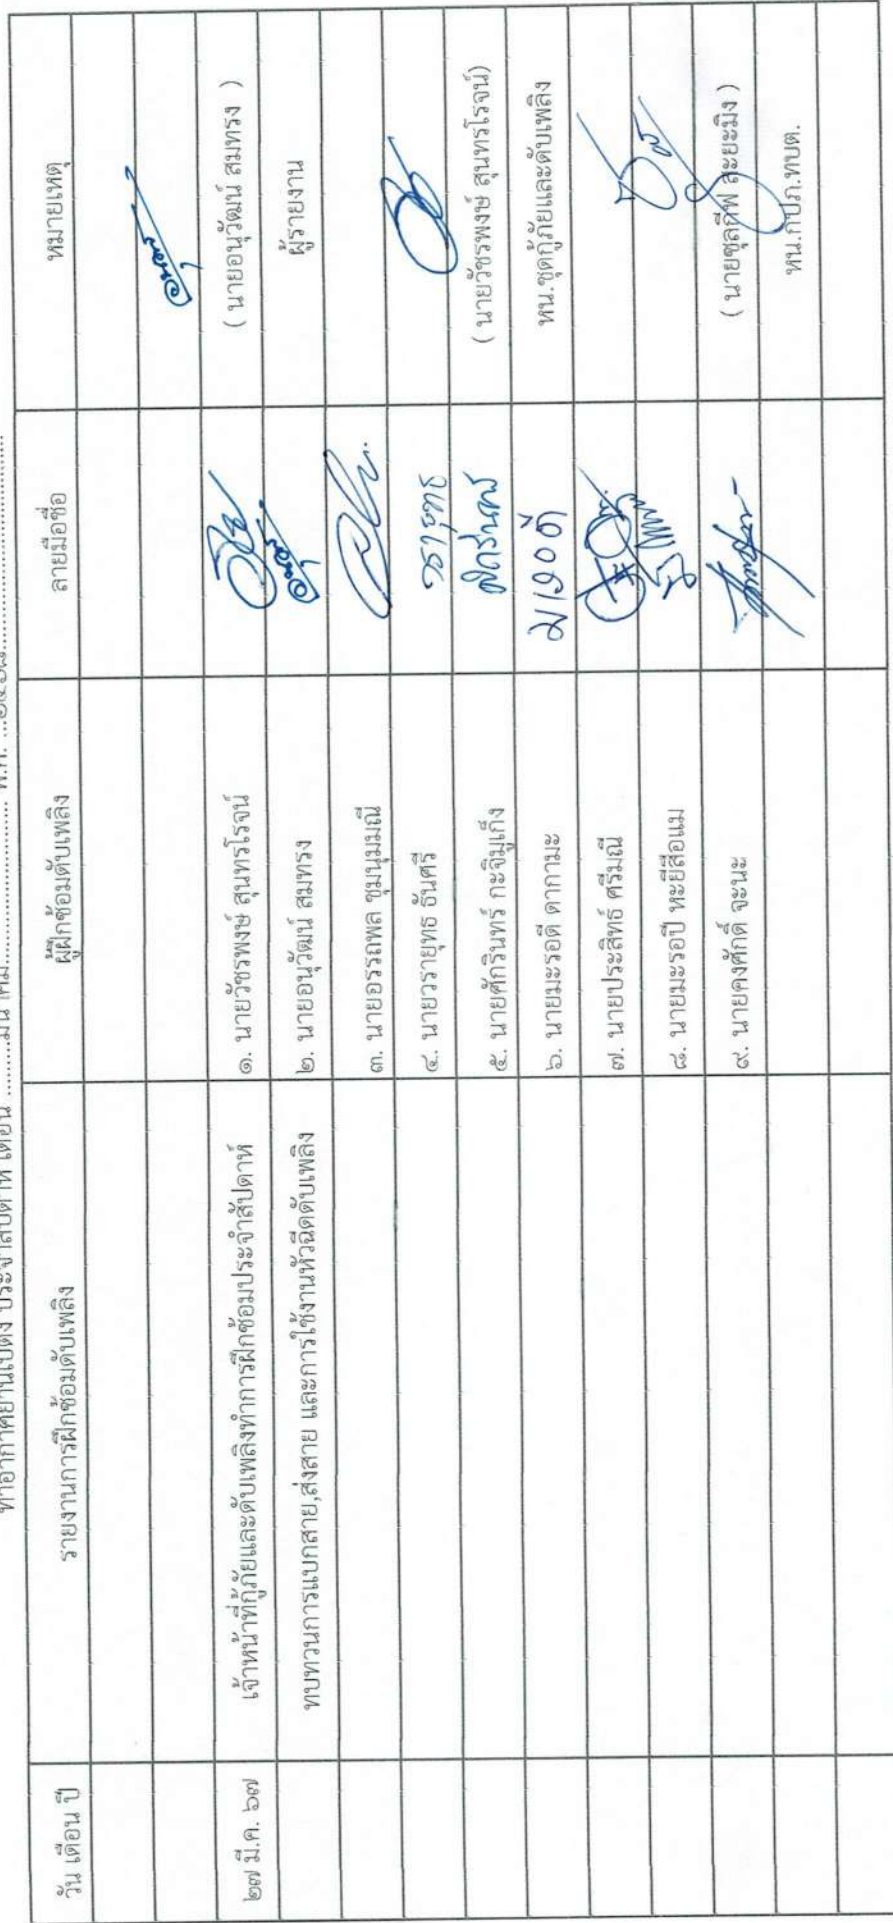 ท่าอากาศยานเบตง ประจำสัปดาห์ เดือน ..........มีนาคม.......... พ.ศ. ...๒๕๖๗..........
วัน เดือน ปี รายงานการฝึกซ้อมดับเพลิง ผู้ฝึกซ้อมดับเพลิง ลายมือชื่อ หมายเหตุ
๒๗ มี.ค. ๖๗ เจ้าหน้าที่กู้ภัยและดับเพลิงทำการฝึกซ้อมประจำสัปดาห์ ๑. นายวัชรพงษ์ สุนทรโรจน์ ( นายอนุวัฒน์ สมทรง )
ทบทวนการแบกสาย,ส่งสาย และการใช้งานหัวฉีดดับเพลิง ๒. นายอนุวัฒน์ สมทรง ผู้รายงาน
๓. นายอรรถพล ชุมนุมมณี
๔. นายวรายุทธ ธันศรี วรายุทธ
๕. นายศักรินทร์ กะจิมูเก็ง ( นายวัชรพงษ์ สุนทรโรจน์)
๖. นายมะรอดี ดากามะ หน.ชุดกู้ภัยและดับเพลิง
๗. นายประสิทธิ์ ศรีมณี
๘. นายมะรอปี หะยีสือแม
๙. นายคงศักดิ์ จะนะ ( นายซุลกีฟ ละยะมิง )
หน.กปภ.ทบต.